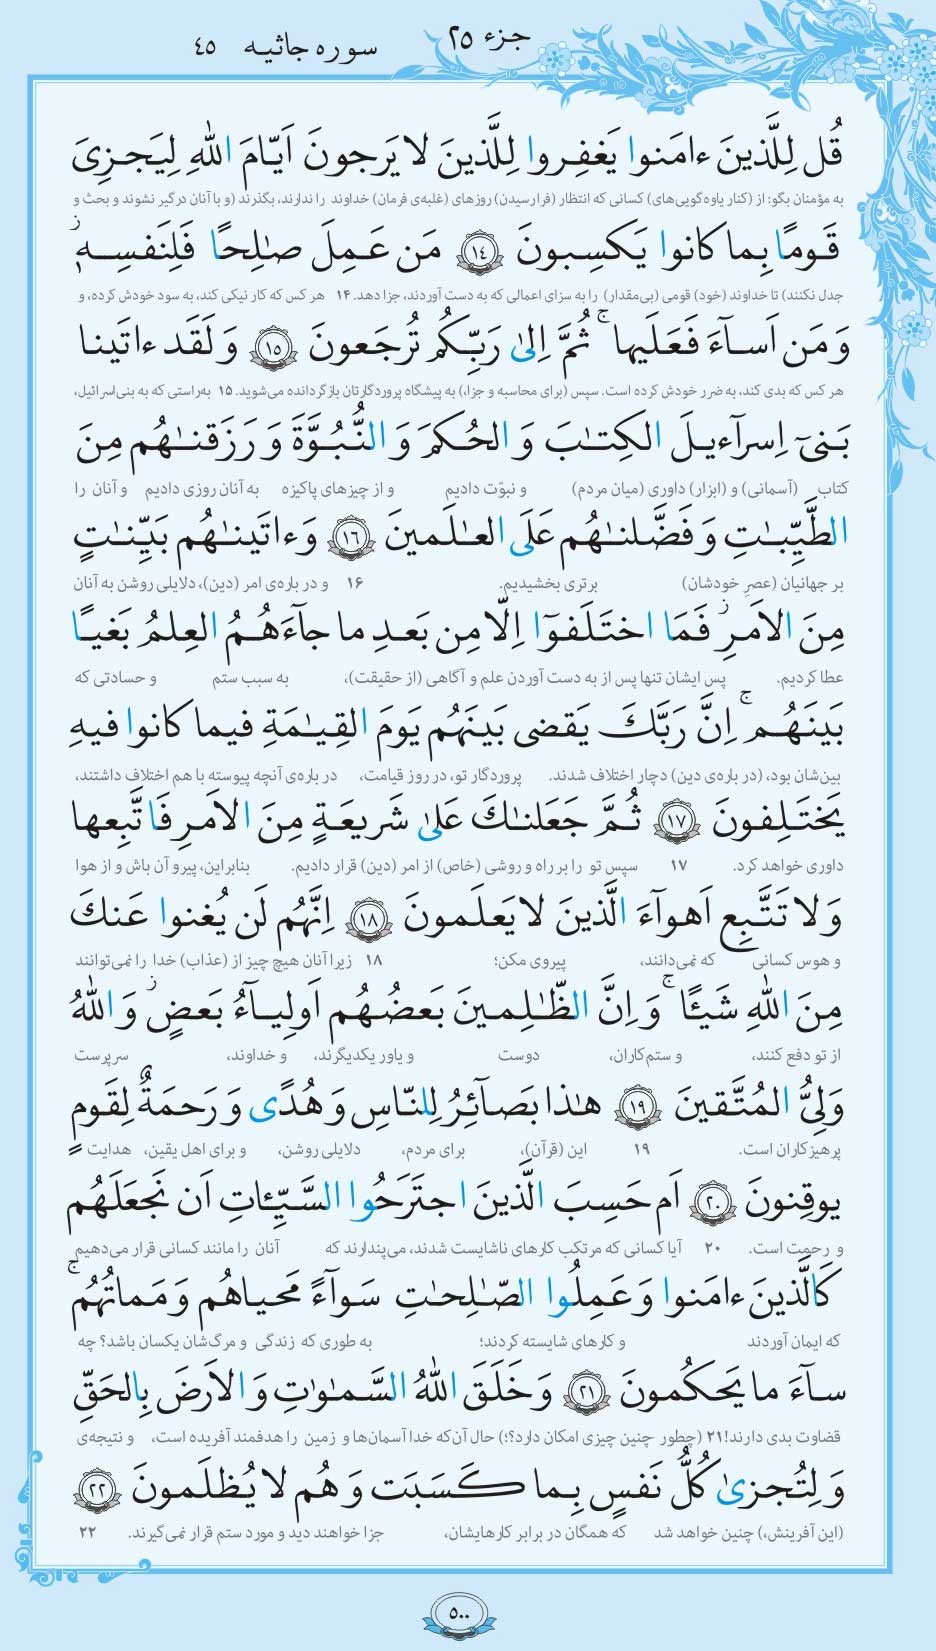 جزء ۲۵ سوره جاثیه ۴۵
قُل لِلَّذینَ ءامَنوا یَغفِروا لِلَّذینَ لا یَرجونَ اَیّامَ اللهِ لِیَجزِیَ
به مؤمنان بگو: از (کنار یاوه‌گویی‌های) کسانی که انتظار (فرارسیدن) روزهای (غلبه‌ی فرمان) خداوند را ندارند، بگذرند (و با آنان درگیر نشوند و بحث و
قَومًا بِما کانوا یَکسِبونَ ﴿۱۴﴾ مَن عَمِلَ صالِحًا فَلِنَفسِهٖ ز
جدل نکنند) تا خداوند (خود) قومی (بی‌مقدار) را به سزای اعمالی که به دست آوردند، جزا دهد. ۱۴ هر کس که کار نیکی کند، به سود خودش کرده، و
وَ مَن اَسآءَ فَعَلَیها ج ثُمَّ اِلیٰ رَبِّکُم تُرجَعونَ ﴿۱۵﴾ وَ لَقَد ءاتَینا
هر کس که بدی کند، به ضرر خودش کرده است. سپس (برای محاسبه و جزا،) به پیشگاه پروردگارتان بازگردانده می‌شوید. ۱۵ به‌راستی که به بنی‌اسرائیل،
بَنیٓ اِسرآءیلَ الکِتٰبَ وَ الحُکمَ وَ النُّبُوَّةَ وَ رَزَقنٰهُم مِنَ
کتاب (آسمانی) و (ابزار) داوری (میان مردم) و نبوّت دادیم و از چیزهای پاکیزه به آنان روزی دادیم و آنان را
الطَّیِّبٰتِ وَ فَضَّلنٰهُم عَلَی العٰلَمینَ ﴿۱۶﴾ وَ ءاتَینٰهُم بَیِّنٰتٍ
بر جهانیان (عصرِ خودشان) برتری بخشیدیم. ۱۶ و در باره‌ی امر (دین)، دلایلی روشن به آنان
مِنَ الاَمرِ ز فَمَا اختَلَفوٓا اِلّا مِن بَعدِ ما جآءَهُمُ العِلمُ بَغیًا
عطا کردیم. پس ایشان تنها پس از به دست آوردن علم و آگاهی (از حقیقت)، به سبب ستم و حسادتی که
بَینَهُم ج اِنَّ رَبَّکَ یَقضی بَینَهُم یَومَ القِیٰمَةِ فیما کانوا فیهِ
بین‌شان بود، (در باره‌ی دین) دچار اختلاف شدند. پروردگار تو، در روز قیامت، در باره‌ی آنچه پیوسته با هم اختلاف داشتند،
یَختَلِفونَ ﴿۱۷﴾ ثُمَّ جَعَلنٰکَ عَلیٰ شَریعَةٍ مِنَ الاَمرِ فَاتَّبِعها
داوری خواهد کرد. ۱۷ سپس تو را بر راه و روشی (خاص) از امر (دین) قرار دادیم. بنابراین، پیرو آن باش و از هوا
وَ لا تَتَّبِع اَهوآءَ الَّذینَ لا یَعلَمونَ ﴿۱۸﴾ اِنَّهُم لَن یُغنوا عَنکَ
و هوس کسانی که نمی‌دانند، پیروی مکن؛ ۱۸ زیرا آنان هیچ چیز از (عذاب) خدا را نمی‌توانند
مِنَ اللهِ شَیئًا ج وَ اِنَّ الظّٰلِمینَ بَعضُهُم اَولِیآءُ بَعضٍ ز وَ اللهُ
از تو دفع کنند، و ستم‌کاران، دوست و یاور یکدیگرند، و خداوند، سرپرست
وَلِیُّ المُتَّقینَ ﴿۱۹﴾ هٰذا بَصآئِرُ لِلنّاسِ وَ هُدًی وَ رَحمَةٌ لِقَومٍ
پرهیزکاران است. ۱۹ این (قرآن)، برای مردم، دلایلی روشن، و برای اهل یقین، هدایت
یوقِنونَ ﴿۲۰﴾ اَم حَسِبَ الَّذینَ اجتَرَحُوا السَّیِّئاتِ اَن نَجعَلَهُم
و رحمت است. ۲۰ آیا کسانی که مرتکب کارهای ناشایست شدند، می‌پندارند که آنان را مانند کسانی قرار می‌دهیم
کَالَّذینَ ءامَنوا وَ عَمِلُوا الصّٰلِحٰتِ سَوآءً مَحیاهُم وَ مَماتُهُم ج
که ایمان آوردند و کارهای شایسته کردند؛ به طوری که زندگی و مرگ‌شان یکسان باشد؟ چه
سآءَ ما یَحکُمونَ ﴿۲۱﴾ وَ خَلَقَ اللهُ السَّمٰوٰتِ وَ الاَرضَ بِالحَقِّ
قضاوت بدی دارند! ۲۱ (چطور چنین چیزی امکان دارد؟؛) حال آن‌که خدا آسمان‌ها و زمین را هدفمند آفریده است، و نتیجه‌ی
وَ لِتُجزیٰ کُلُّ نَفسٍ بِما کَسَبَت وَ هُم لا یُظلَمونَ ﴿۲۲﴾
(این آفرینش،) چنین خواهد شد که همگان در برابر کارهایشان، جزا خواهند دید و مورد ستم قرار نمی‌گیرند. ۲۲
۵۰۰